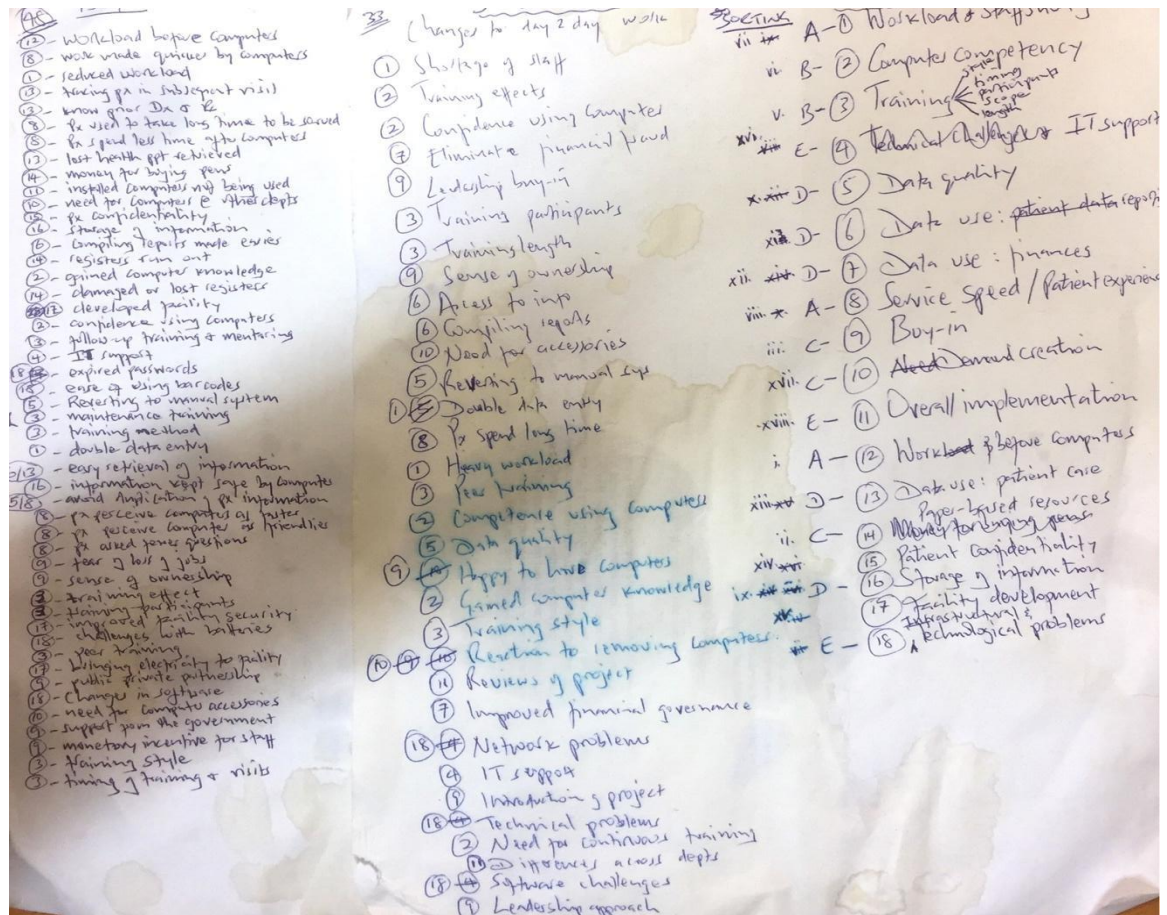 45
(12) - workload before computers
(8) - work made quicker by computers
(1) - seduced workload
(13) - tracing px in subsequent visit
(13) - know prior Dx & Rx
(8) - Px used to take long time to be served
(8) - Px spend less time after computers
(13) - lost health ppt retrieved
(14) - money for buying pens
(11) - installed computers not being used
(10) - need for computers @ other depts
(15) - px confidentiality
(16) - storage of information
(6) - compiling reports made easier
(14) - registers run out
(2) - gained computer knowledge
(14) - damaged or lost registers
- developed facility
(2) - confidence using computers
(3) - follow-up training & mentoring
(4) - IT support
(18) - expired passwords
(18) - ease of using barcodes
(5) - Reverting to manual system
(3) - maintenance training
(3) - training method
(1) - double data entry
/13) - easy retrieval of information
(16) - information kept safe by computer
5/8) - avoid duplication of px information
(8) - px perceive computer as faster
(8) - px perceive computer as friendlier
(8) - px asked fewer questions
(9) - fear of loss of jobs
(9) - sense of ownership
(2) - training effect
(3) - training participants
(17) - improved facility security
(18) - challenges with batteries
(3) - peer training
(17) - bringing electricity to facility
(9) - public private partnership
(18) - Changes in software
(10) - need for computer accessories
(9) - support from the government
(9) - monetary incentive for staff
(3) - training style
(3) - timing of training & visits
33
Changes to day 2 day work
(1) Shortage of staff
(2) Training effects
(2) Confidence using computer
(7) Eliminate financial fraud
(9) Leadership buy-in
(3) Training participants
(3) Training length
(9) Sense of ownership
(6) Access to info
(6) Compiling reports
(10) Need for accessories
(5) Revering to manual sys
(1) (5) Double data entry
(8) Px spend long time
(1) Heavy workload
(3) Peer training
(2) Competence using computers
(5) Data quality
(9) Happy to have computers
(2) Gained computer knowledge
(3) Training style
(10) (9) (10) Reaction to removing computers
(11) Reviews of project
(7) Improved financial governance
(18) (4) Network problems
(4) IT support
(9) Introduction of project
(18) (4) Technical problems
(2) Need for continuous training
(11) Differences across depts
(18) (4) Software challenges
(9) Leadership approach
SORTING
vii ix A - (1) Workload & staff
vi. B - (2) Computer competency
v. B - (3) Training
style
timing
participants
scope
length
xvi. E - (4) Technical challenges & IT support
x. xii D - (5) Data quality
D - (6) Data use: patient data
xii. xiv D - (7) Data use: finances
viii. x. A - (8) Service Speed / Patient
iii. C - (9) Buy-in
xvii. C - (10) Need Demand creation
xviii. E - (11) Overall implementation
i. A - (12) Workload & before computers
D - (13) Data use: patient care
Paper-based resources
ii. C - (14) Money for buying pens
xiv (15) Patient confidentiality
ix. D - (16) Storage of information
(17) Facility development
Infrastructural &
E - (18) technological problems